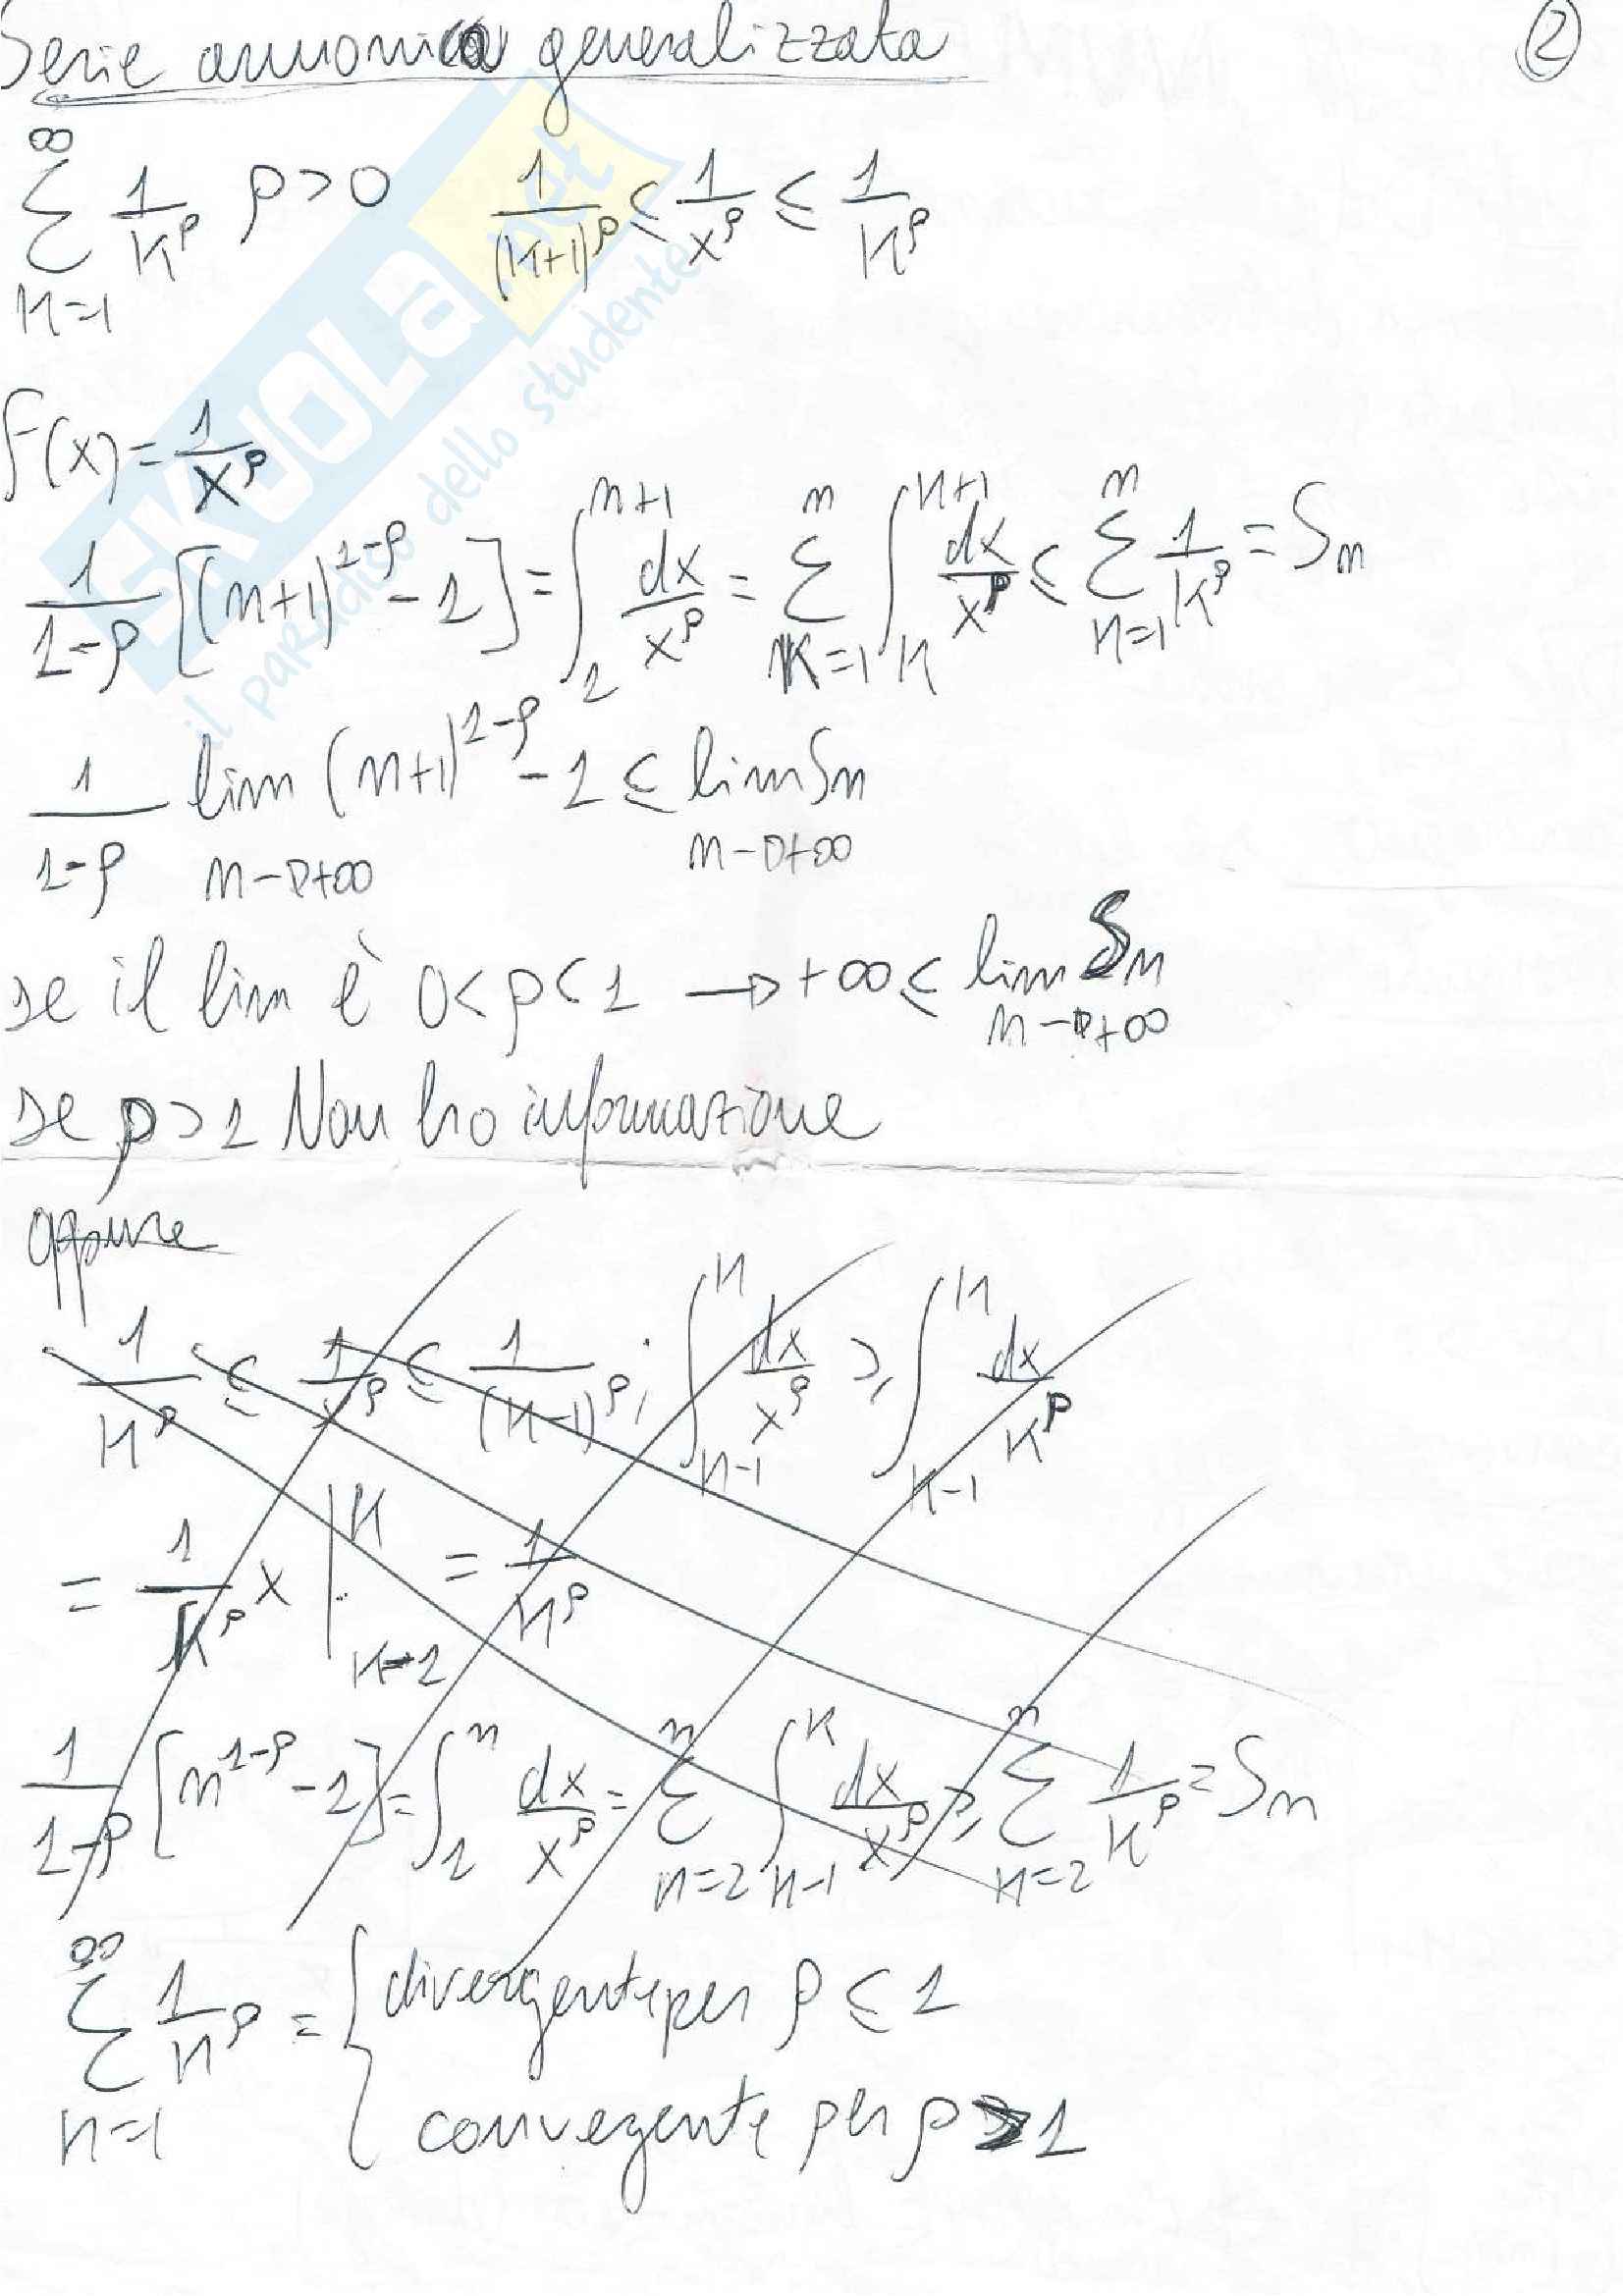 Serie armonica generalizzata ②
∞
∑ 1/K^p p>0 1/(K+1)^p ≤ 1/x^p ≤ 1/K^p
K=1
f(x)=1/x^p
1/(1-p) [(n+1)^(1-p) - 1] = ∫_1^(n+1) dx/x^p = ∑_(K=1)^n ∫_K^(K+1) dx/x^p ≤ ∑_(K=1)^n 1/K^p = Sn
1/(1-p) lim_(n→+∞) (n+1)^(1-p) - 1 ≤ lim_(n→+∞) Sn
se il lim è 0<p<1 → +∞ ≤ lim_(n→+∞) Sn
se p>1 Non ho informazione
oppure
1/K^p ≤ 1/x^p ≤ 1/(K-1)^p ; ∫_(K-1)^K dx/x^p ≥ ∫_(K-1)^K dx/K^p
= 1/K^p x |_(K-1)^K = 1/K^p
1/(1-p) [n^(1-p) - 1] = ∫_1^n dx/x^p = ∑_(K=2)^n ∫_(K-1)^K dx/x^p ≥ ∑_(K=2)^n 1/K^p = Sn
∑_(K=1)^∞ 1/K^p = { divergente per p ≤ 1
convegente per p > 1
SKUOLA.net
il paradiso dello studente